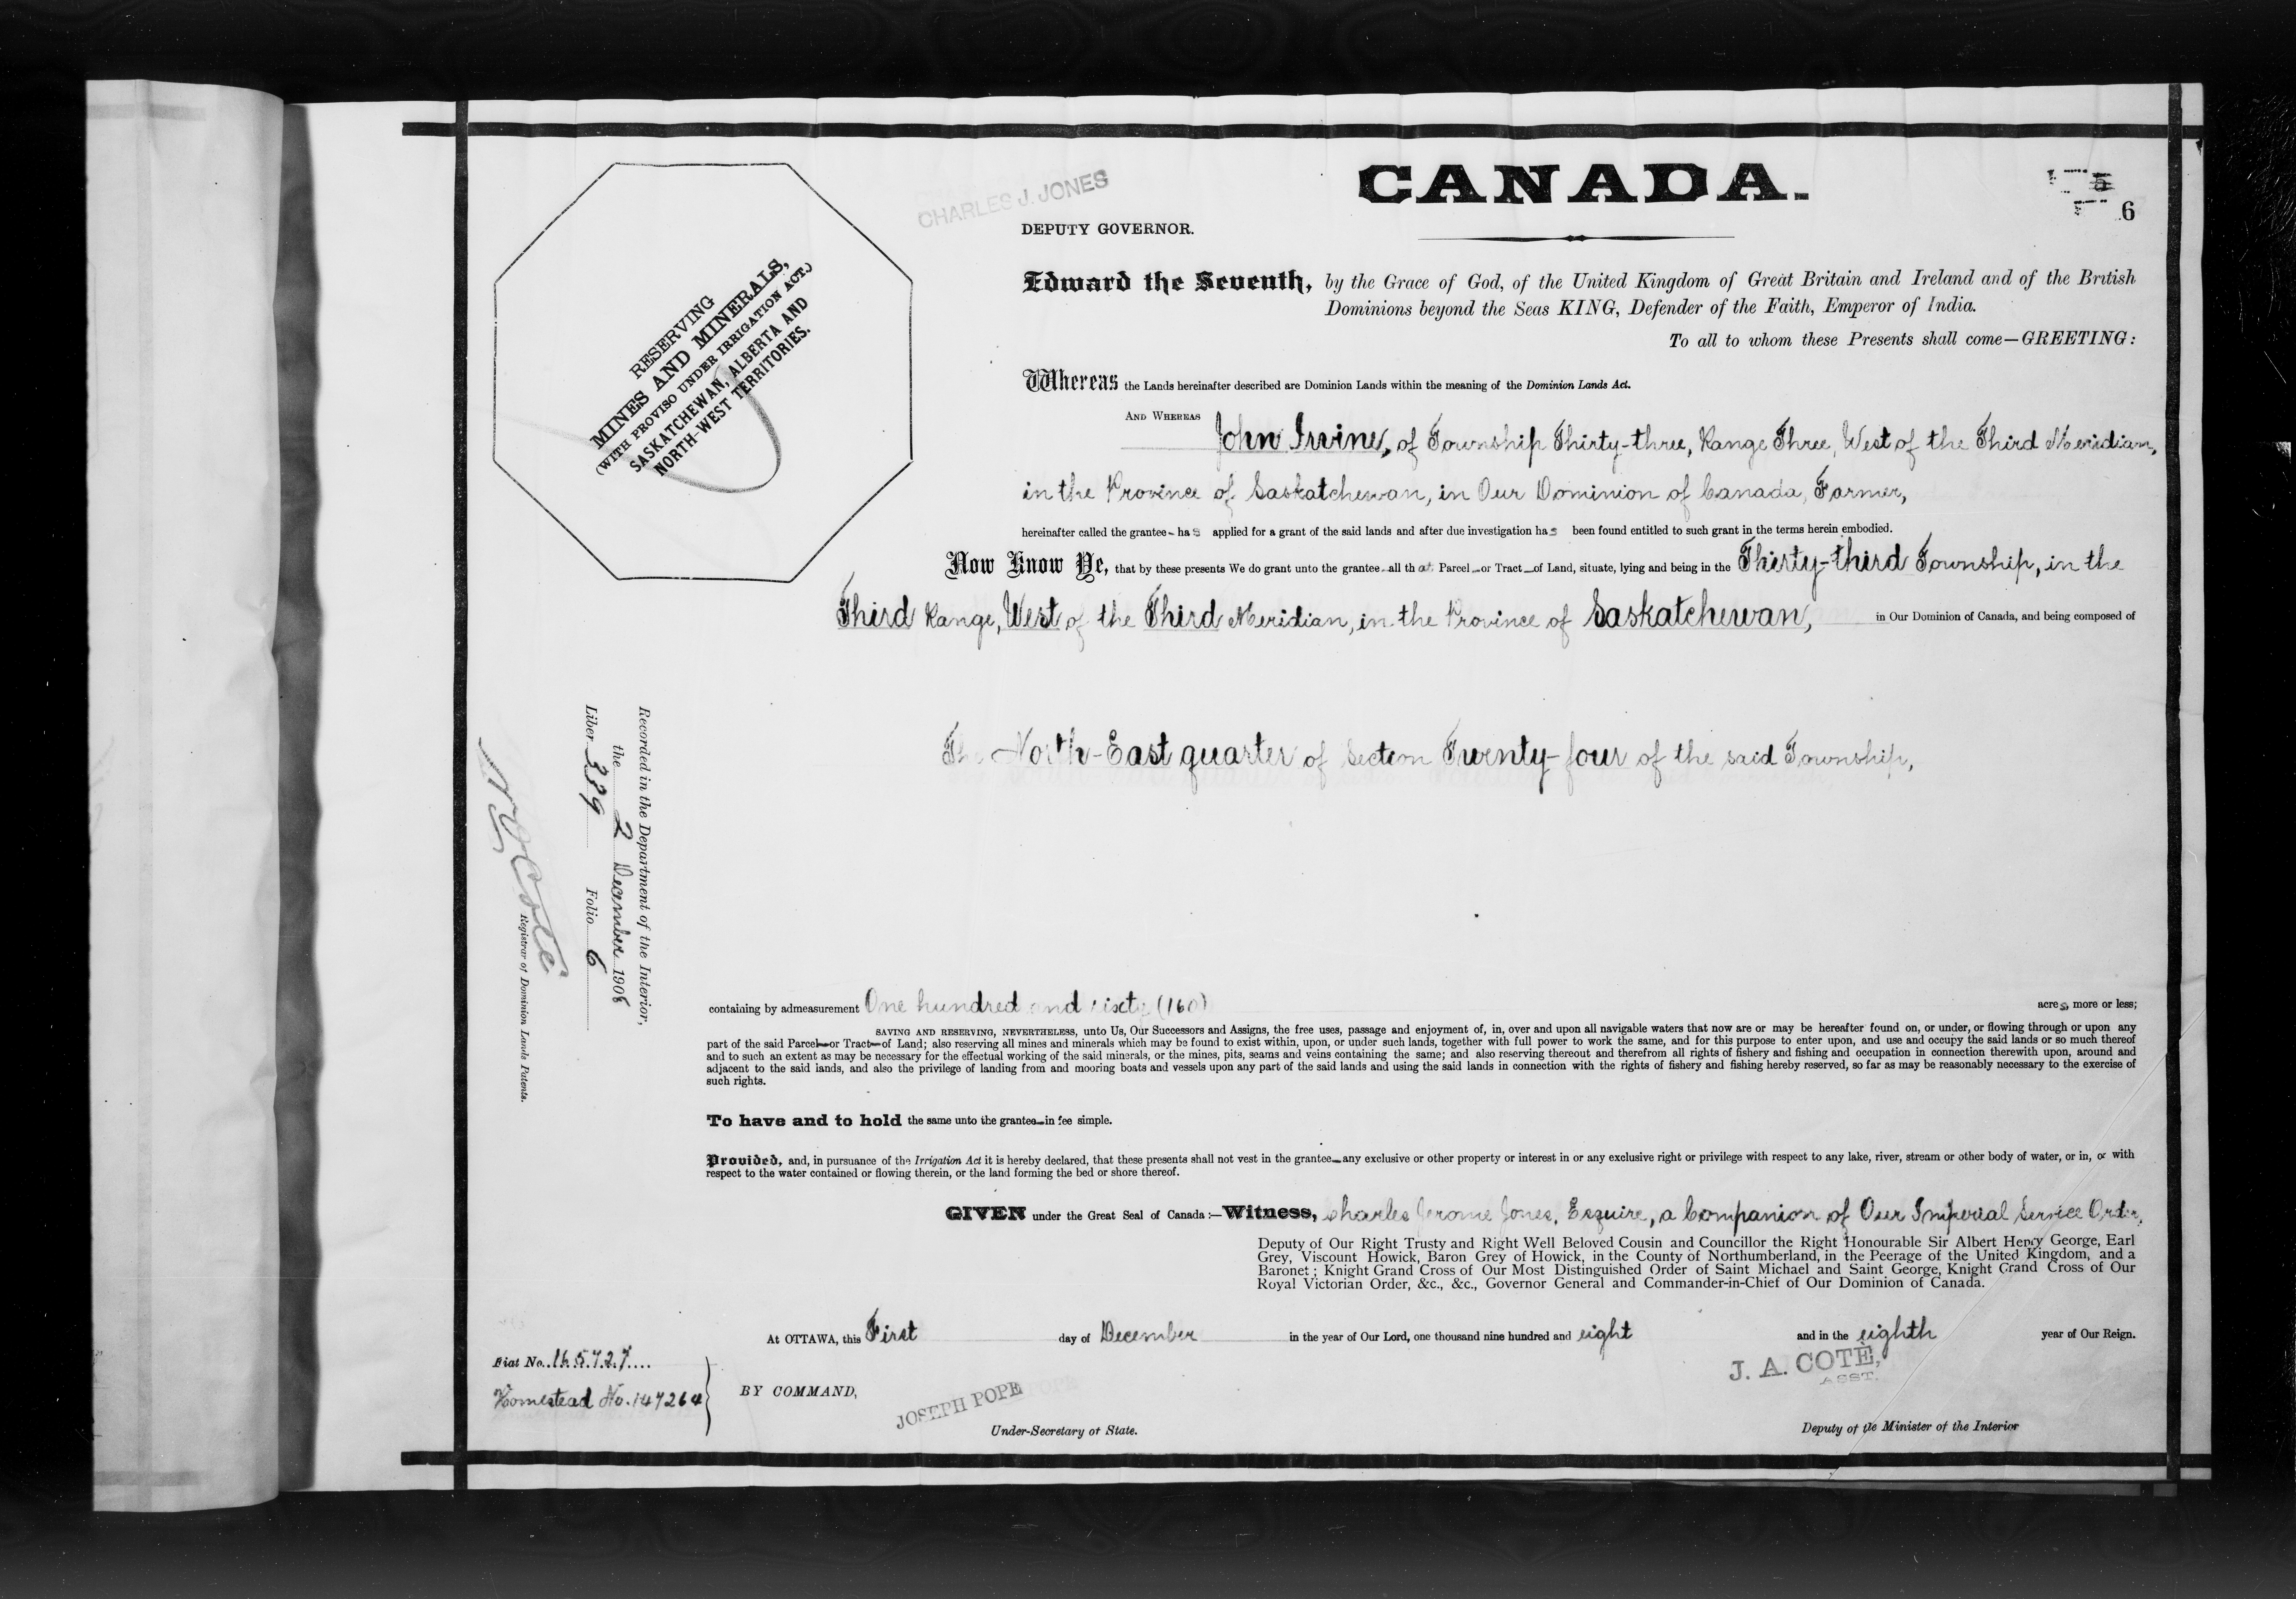 CANADA.
6
CHARLES J. JONES
DEPUTY GOVERNOR.
RESERVING
MINES AND MINERALS,
(WITH PROVISO UNDER IRRIGATION ACT.)
SASKATCHEWAN, ALBERTA AND
NORTH-WEST TERRITORIES.
Edward the Seventh, by the Grace of God, of the United Kingdom of Great Britain and Ireland and of the British
Dominions beyond the Seas KING, Defender of the Faith, Emperor of India.
To all to whom these Presents shall come—GREETING:
Whereas the Lands hereinafter described are Dominion Lands within the meaning of the Dominion Lands Act.
AND WHEREAS John Irvine, of Township Thirty-three, Range Three, West of the Third Meridian,
in the Province of Saskatchewan, in Our Dominion of Canada, Farmer,
hereinafter called the grantee has applied for a grant of the said lands and after due investigation has been found entitled to such grant in the terms herein embodied.
Now Know Ye, that by these presents We do grant unto the grantee all that Parcel or Tract of Land, situate, lying and being in the Thirty-third Township, in the
Third Range, West of the Third Meridian, in the Province of Saskatchewan, in Our Dominion of Canada, and being composed of
The North-East quarter of Section Twenty-four of the said Township,
Recorded in the Department of the Interior,
the 2 December 1908
Liber 389 Folio 6
N O Coté
Registrar of Dominion Lands Patents.
containing by admeasurement One hundred and sixty (160) acres, more or less;
SAVING AND RESERVING, NEVERTHELESS, unto Us, Our Successors and Assigns, the free uses, passage and enjoyment of, in, over and upon all navigable waters that now are or may be hereafter found on, or under, or flowing through or upon any
part of the said Parcel or Tract of Land; also reserving all mines and minerals which may be found to exist within, upon, or under such lands, together with full power to work the same, and for this purpose to enter upon, and use and occupy the said lands or so much thereof
and to such an extent as may be necessary for the effectual working of the said minerals, or the mines, pits, seams and veins containing the same; and also reserving thereout and therefrom all rights of fishery and fishing and occupation in connection therewith upon, around and
adjacent to the said lands, and also the privilege of landing from and mooring boats and vessels upon any part of the said lands and using the said lands in connection with the rights of fishery and fishing hereby reserved, so far as may be reasonably necessary to the exercise of
such rights.
To have and to hold the same unto the grantee in fee simple.
Provided, and, in pursuance of the Irrigation Act it is hereby declared, that these presents shall not vest in the grantee any exclusive or other property or interest in or any exclusive right or privilege with respect to any lake, river, stream or other body of water, or in, or with
respect to the water contained or flowing therein, or the land forming the bed or shore thereof.
GIVEN under the Great Seal of Canada:—Witness, Charles Jerome Jones, Esquire, a Companion of Our Imperial Service Order,
Deputy of Our Right Trusty and Right Well Beloved Cousin and Councillor the Right Honourable Sir Albert Henry George, Earl
Grey, Viscount Howick, Baron Grey of Howick, in the County of Northumberland, in the Peerage of the United Kingdom, and a
Baronet; Knight Grand Cross of Our Most Distinguished Order of Saint Michael and Saint George, Knight Grand Cross of Our
Royal Victorian Order, &c., &c., Governor General and Commander-in-Chief of Our Dominion of Canada.
At OTTAWA, this First day of December in the year of Our Lord, one thousand nine hundred and eight and in the eighth year of Our Reign.
Fiat No. 165727
Homestead No. 147264
BY COMMAND,
JOSEPH POPE
Under-Secretary of State.
J. A. COTÉ,
ASST.
Deputy of the Minister of the Interior